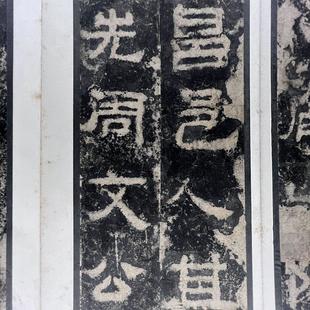 昌邑人其
先周文公